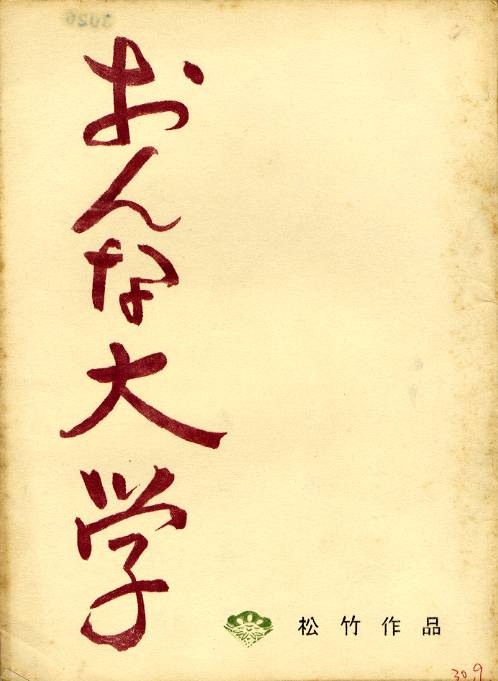 おんな大学
松竹作品
30.9.